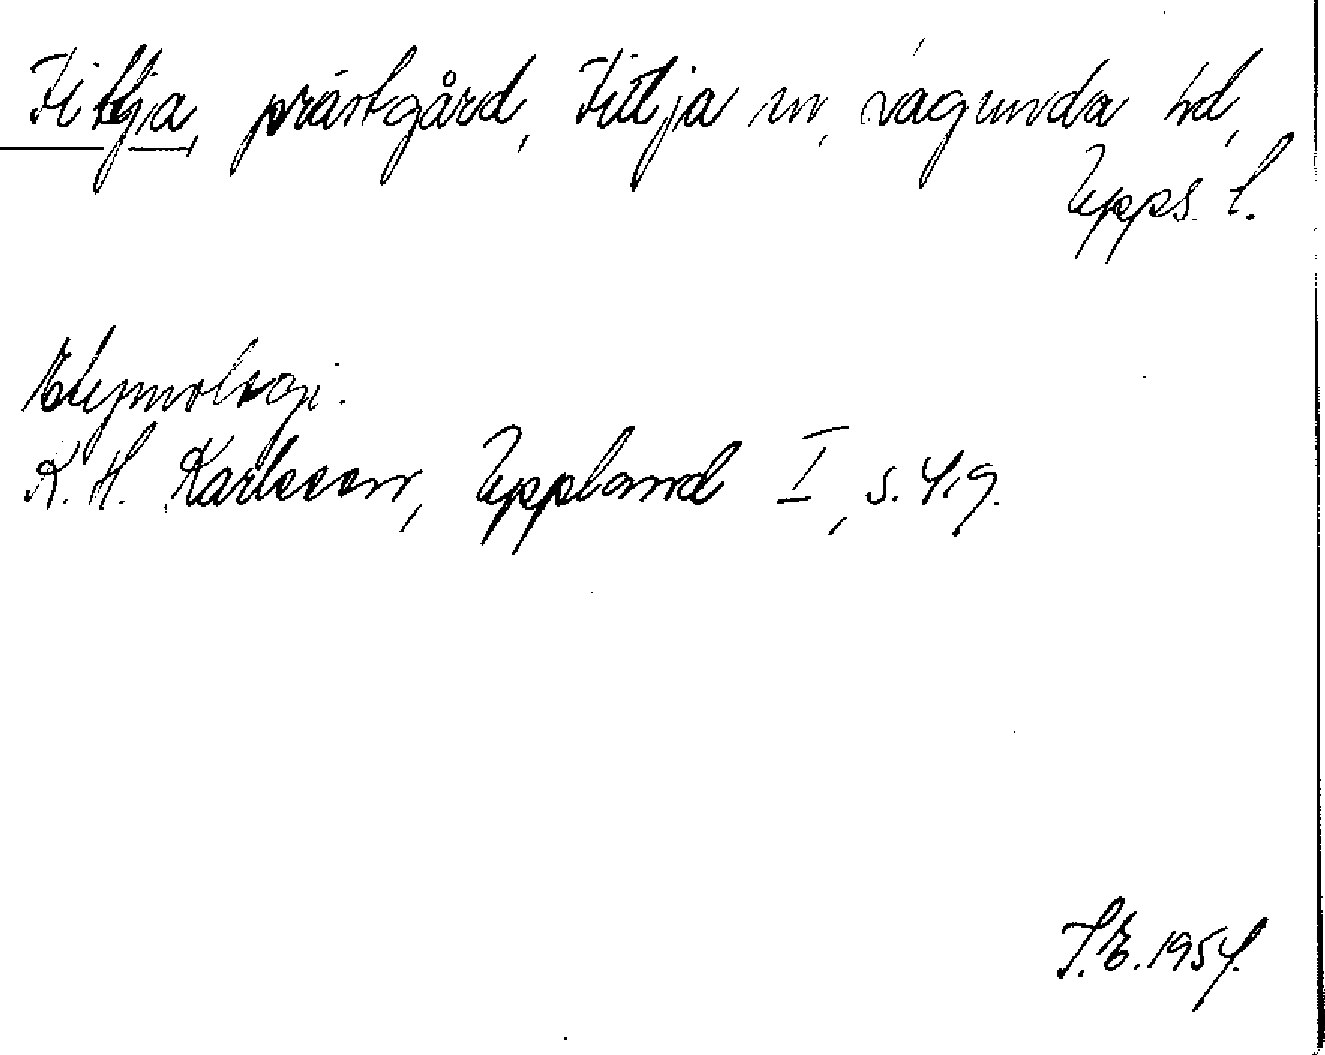 Fittja, prästgård, Fittja sn, Lagunda hd,
Upps. l.
Etymologi.
K. H. Karlsson, Uppland I, s. 419.
T.E. 1954.